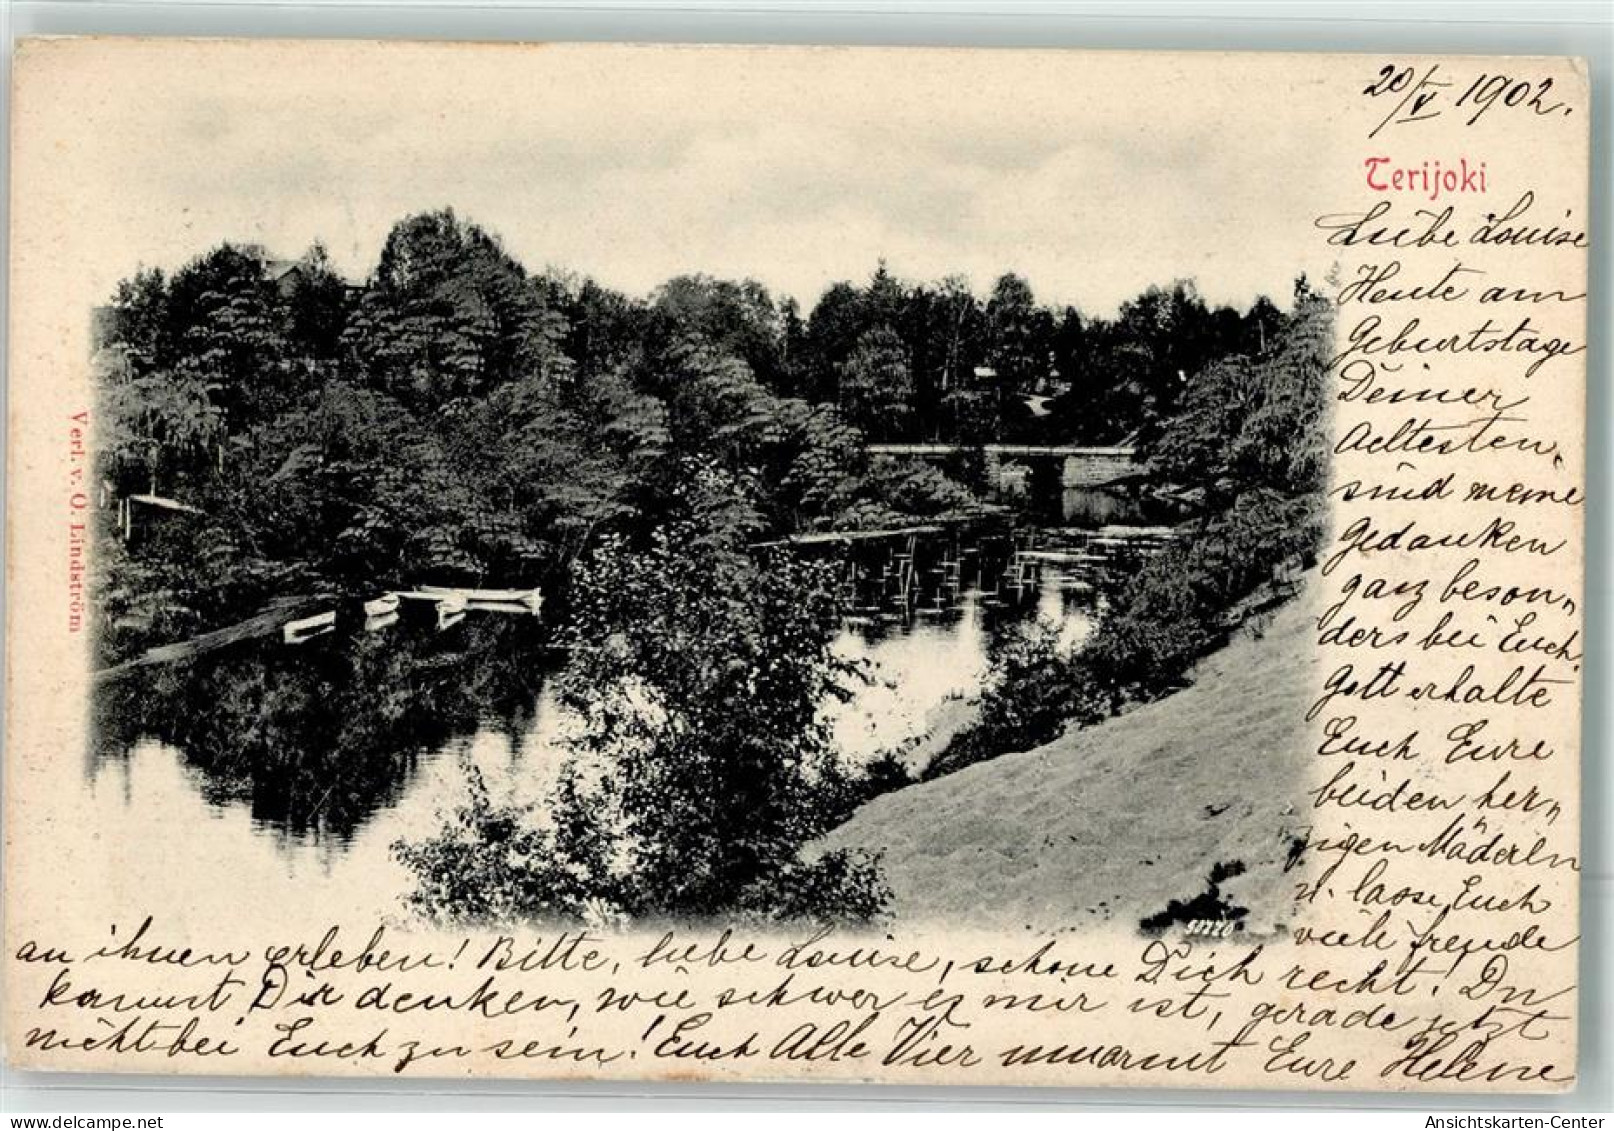 20/V 1902.
Terijoki
Liebe Louise
Heute am
Geburtstage
Deiner
Aeltesten,
sind meine
Gedanken
ganz beson„
ders bei Euch.
Gott erhalte
Euch Eure
beiden her„
zigen Mäderln
u. lasse Euch
viele freude
an ihnen erleben! Bitte, liebe Louise, schone Dich recht! Du
kannst Dir denken, wie schwer es mir ist, gerade jetzt
nicht bei Euch zu sein! Euch Alle Vier umarmt Eure Helene
Verl. v. O. Lindström
Ansichtskarten-Center